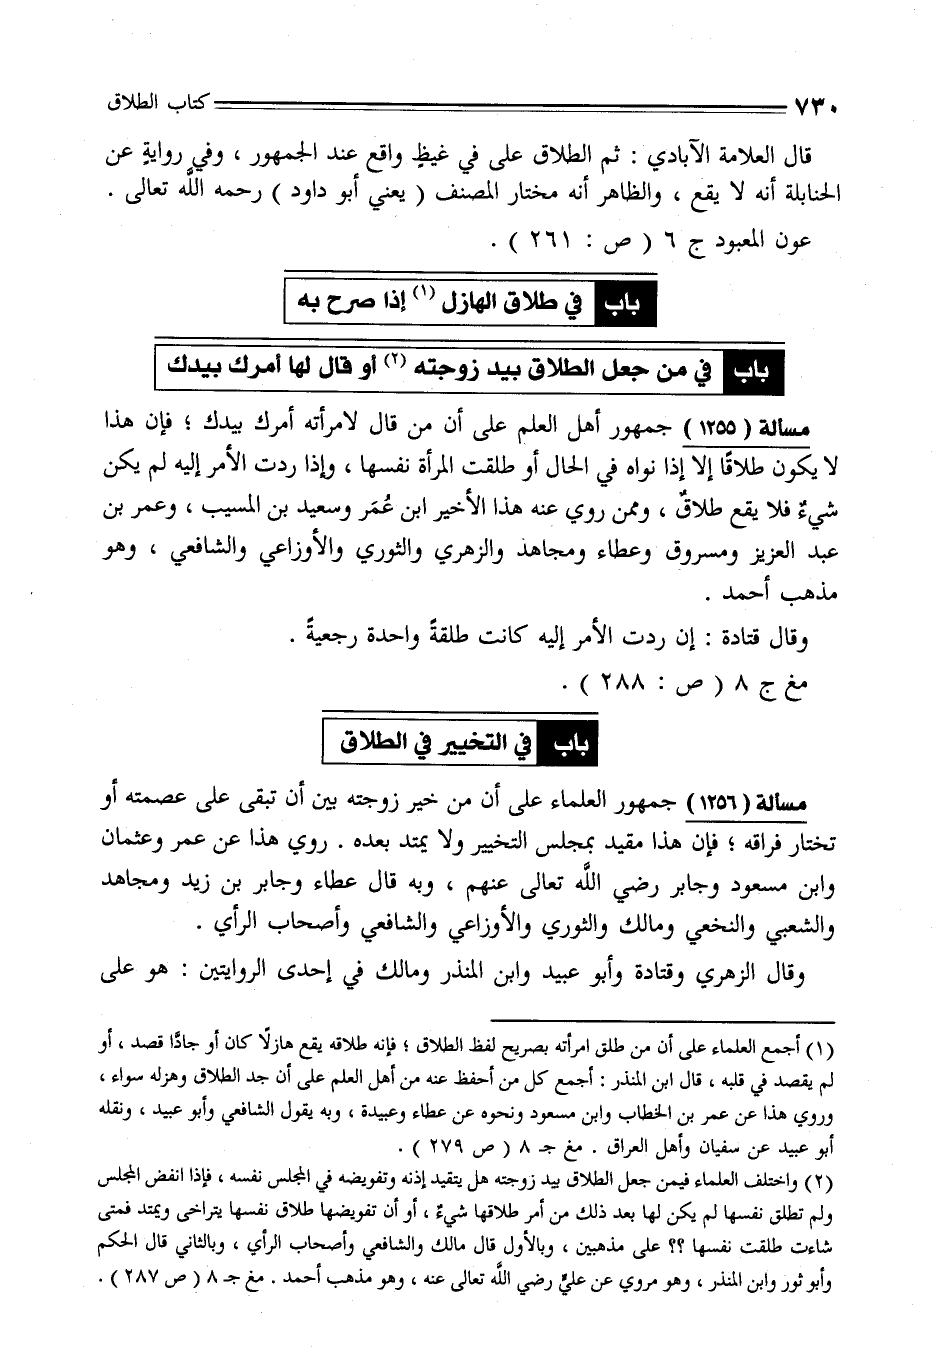 ٧٣٠ كتاب الطلاق
قال العلامة الآبادي : ثم الطلاق على في غيظٍ واقع عند الجمهور ، وفي روايةٍ عن
الحنابلة أنه لا يقع ، والظاهر أنه مختار المصنف ( يعني أبو داود ) رحمه اللَّه تعالى .
عون المعبود ج ٦ ( ص : ٢٦١ ) .
باب في طلاق الهازل (١) إذا صرح به
باب في من جعل الطلاق بيد زوجته (٢) أو قال لها أمرك بيدك
مسألة ( ١٢٥٥ ) جمهور أهل العلم على أن من قال لامرأته أمرك بيدك ؛ فإن هذا
لا يكون طلاقًا إلا إذا نواه في الحال أو طلقت المرأة نفسها ، وإذا ردت الأمر إليه لم يكن
شيءٌ فلا يقع طلاقٌ ، وممن روي عنه هذا الأخير ابن عُمَر وسعيد بن المسيب ، وعمر بن
عبد العزيز ومسروق وعطاء ومجاهد والزهري والثوري والأوزاعي والشافعي ، وهو
مذهب أحمد .
وقال قتادة : إن ردت الأمر إليه كانت طلقةً واحدة رجعيةً .
مغ ج ٨ ( ص : ٢٨٨ ) .
باب في التخيير في الطلاق
مسألة ( ١٢٥٦ ) جمهور العلماء على أن من خير زوجته بين أن تبقى على عصمته أو
تختار فراقه ؛ فإن هذا مقيد بمجلس التخيير ولا يمتد بعده . روي هذا عن عمر وعثمان
وابن مسعود وجابر رضي اللَّه تعالى عنهم ، وبه قال عطاء وجابر بن زيد ومجاهد
والشعبي والنخعي ومالك والثوري والأوزاعي والشافعي وأصحاب الرأي .
وقال الزهري وقتادة وأبو عبيد وابن المنذر ومالك في إحدى الروايتين : هو على
(١) أجمع العلماء على أن من طلق امرأته بصريح لفظ الطلاق ؛ فإنه طلاقه يقع هازلًا كان أو جادًّا قصد ، أو
لم يقصد في قلبه ، قال ابن المنذر : أجمع كل من أحفظ عنه من أهل العلم على أن جد الطلاق وهزله سواء ،
وروي هذا عن عمر بن الخطاب وابن مسعود ونحوه عن عطاء وعبيدة ، وبه يقول الشافعي وأبو عبيد ، ونقله
أبو عبيد عن سفيان وأهل العراق . مغ جـ ٨ ( ص ٢٧٩ ) .
(٢) واختلف العلماء فيمن جعل الطلاق بيد زوجته هل يتقيد إذنه وتفويضه في المجلس نفسه ، فإذا انفض المجلس
ولم تطلق نفسها لم يكن لها بعد ذلك من أمر طلاقها شيءٌ ، أو أن تفويضها طلاق نفسها يتراخى ويمتد فمتى
شاءت طلقت نفسها ؟؟ على مذهبين ، وبالأول قال مالك والشافعي وأصحاب الرأي ، وبالثاني قال الحكم
وأبو ثور وابن المنذر ، وهو مروي عن عليٍّ رضي اللَّه تعالى عنه ، وهو مذهب أحمد . مغ جـ ٨ ( ص ٢٨٧ ) .